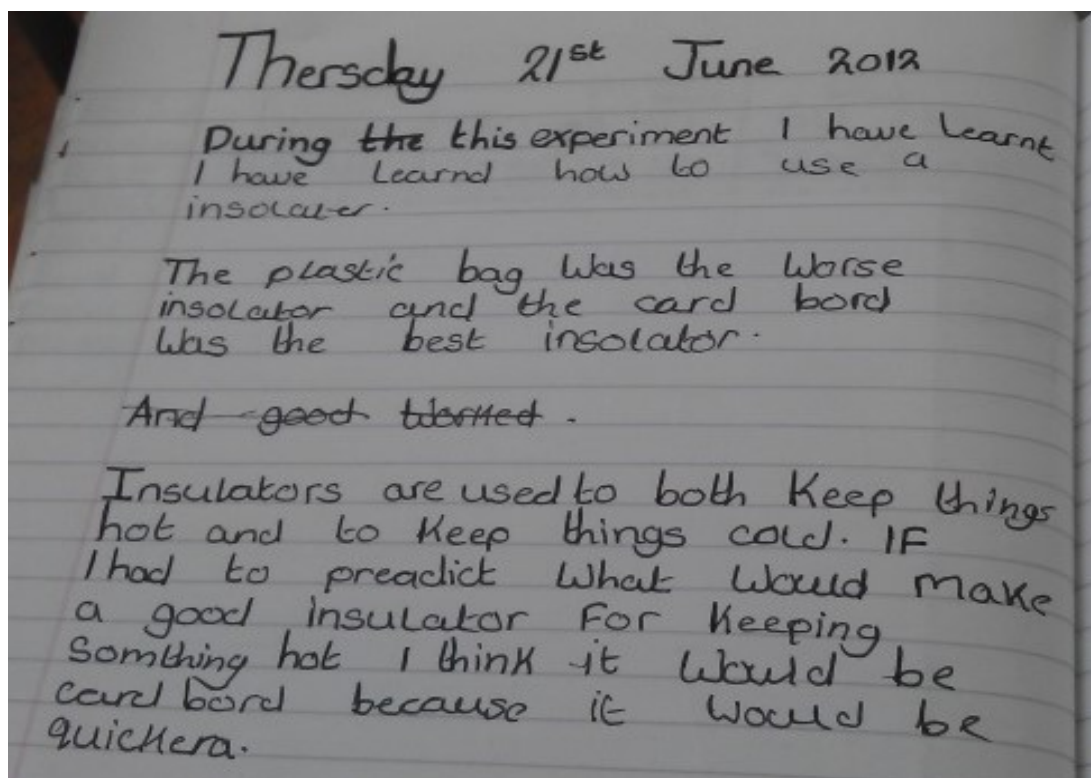 Thersday 21st June 2012
During the this experiment I have learnt
I have learnd how to use a
insolater.
The plastic bag was the worse
insolator and the card bord
was the best insolator.
And good worked.
Insulators are used to both keep things
hot and to keep things cold. If
I had to preadict what would make
a good insulator for keeping
somthing hot I think it would be
card bord because it would be
quickera.